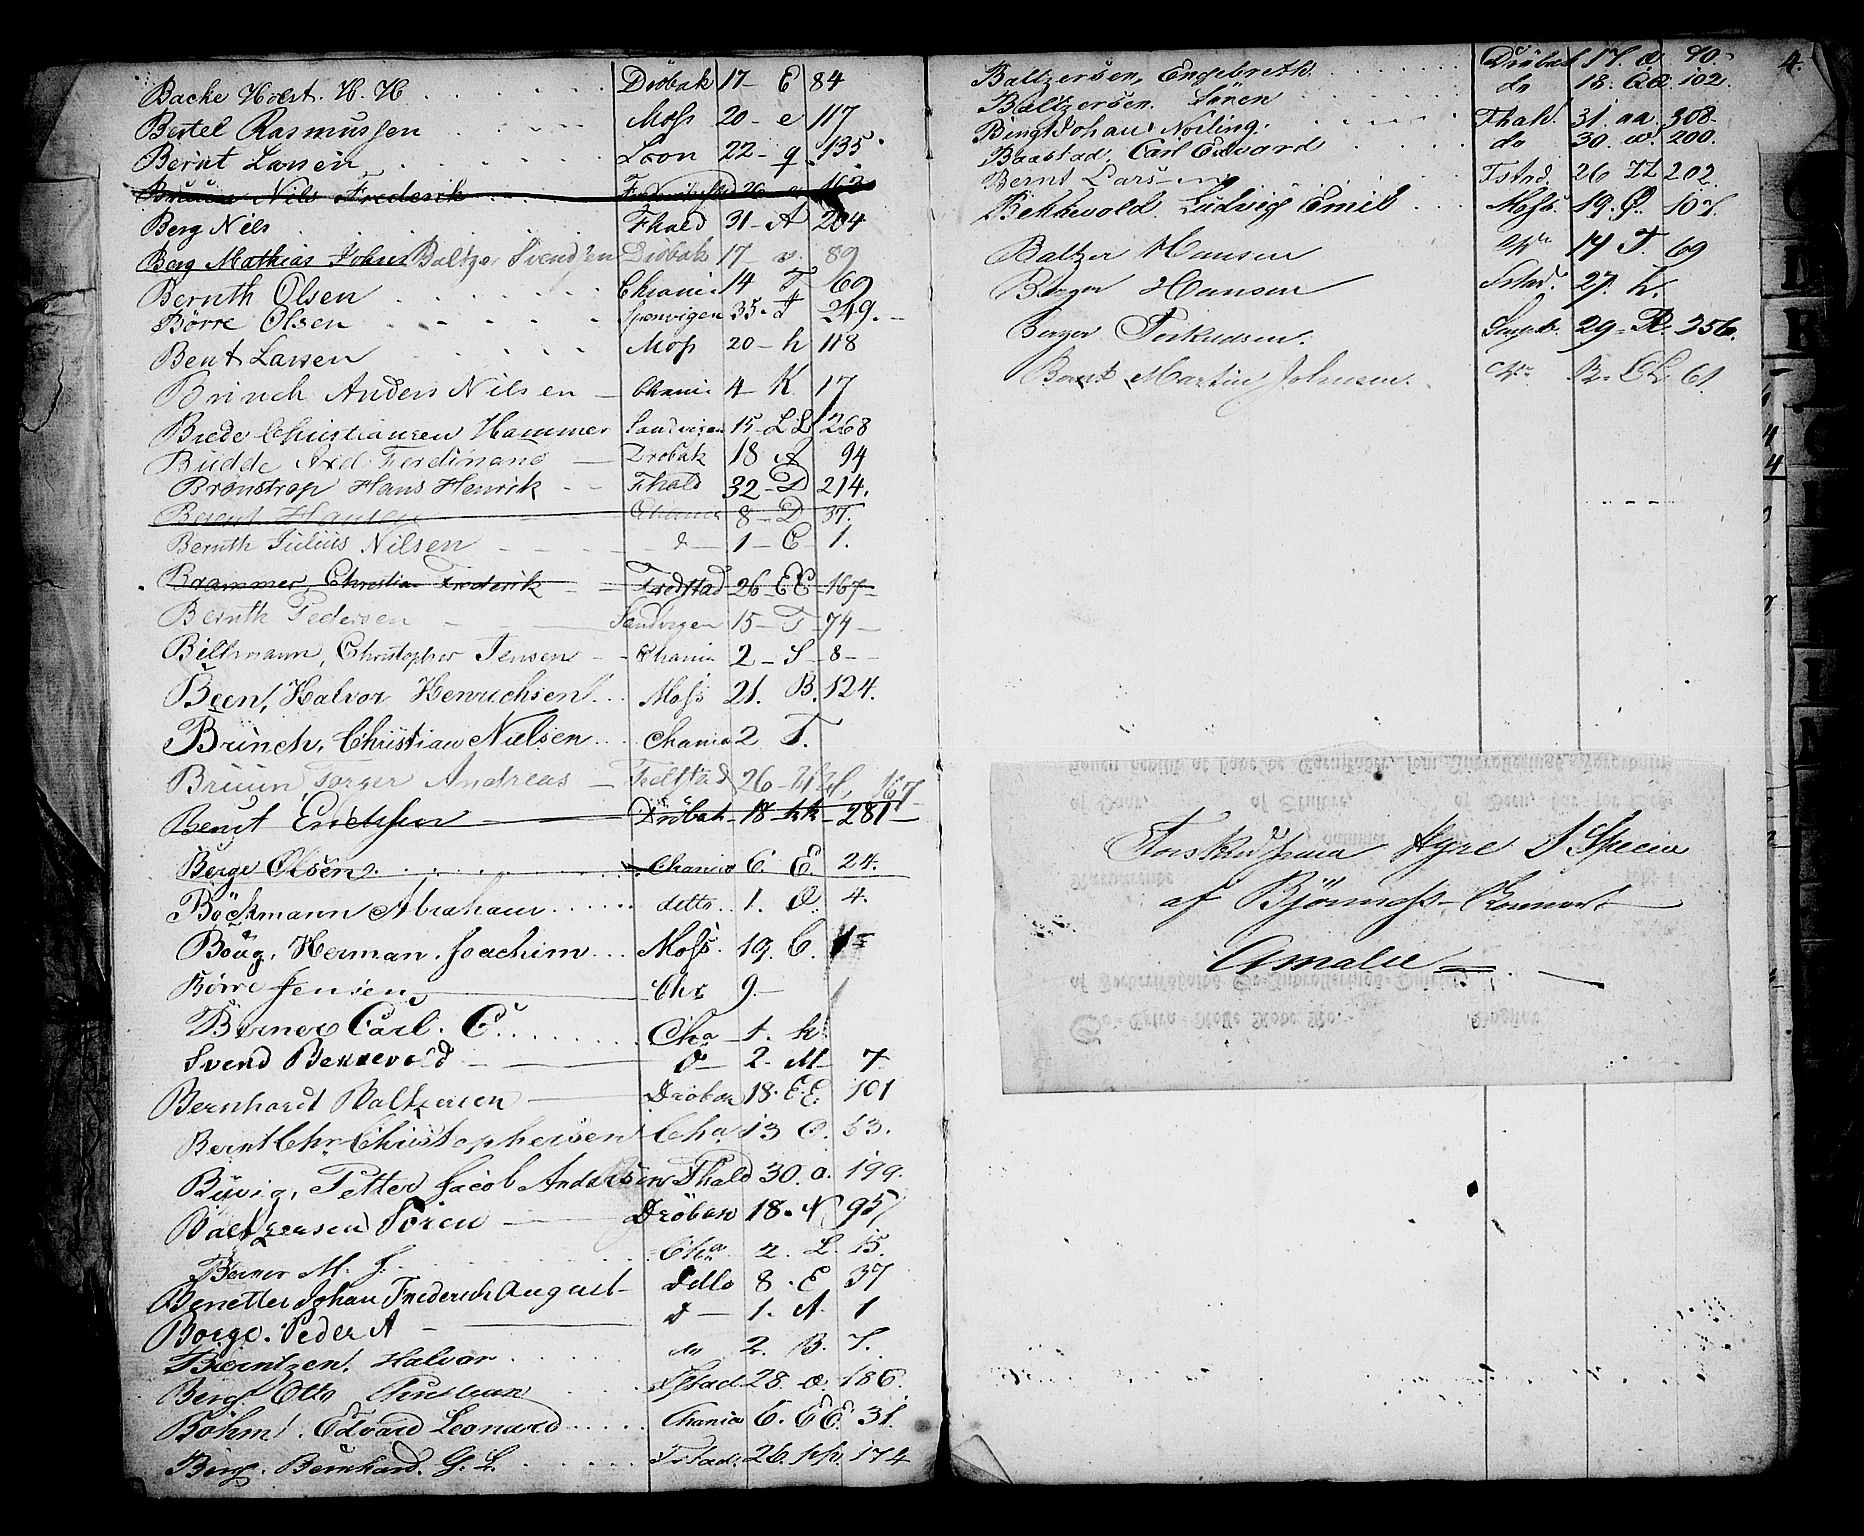 Backe Holst. H. H. Dröbak 17 E 84
Bertel Rasmussen Moss 20 e 117
Bernt Larsen Soon 22 q. 135
Bruun Nils Frederik 26
Berg Nils Fhald 31 A 204
Berg Mathias Johns Baltzer Svendsen Dröbak 17 v. 89
Bernth Olsen Chrania 14 T 69
Börre Olsen Sponvigen 35. F 249.
Bent Larsen Moss 20 h 118
Brinch Anders Nilsen Chania 4 K 17
Brede Christiansen Hammer Sandvigen 15 LL 268
Budde Axel Ferdinand Dröbak 18 A 94
Brønstrop Hans Henrik Fhald 32 D 214.
Berent Hansen Chania 8 D 37.
Bernth Julius Nilsen d 1 C 1.
Brammer, Christian Frederik Fredstad 26 EE 167
Bernth Pedersen Sandvigen 15 T 74
Biltmann, Christopher Jensen Chania 2 S 8
Been, Halvor Henrichsen Moss 21. B. 124.
Brinch, Christian Nielsen Chania 2 T.
Bruun, Torger Andreas Fredstad 26 167
Bengt Erichsen Dröbak 18 kk 281
Berge Olsen Chania 6. E. 24.
Böckmann Abraham detto 1. Q. 4.
Boug, Herman Joachim Moss. 19. C. 1
Börre Jensen Chr 9
Berner Carl. C. Cha 1. k
Svend Bekkevold d 2. M 7
Bernhardt Baltzersen Dröbak 18. EE. 101
Bernt Chr. Christophersen Cha 13 O. 63.
Buvig, Petter Jacob Andersen Fhald 30. a. 199.
Baltzersen Sören Dröbak 18. N 95
Berner M. J. Cha 2. L 15.
Benetter Johan Frederich August Ditto 8. E 37
Borge. Peder A d 1. A. 1
Berntzen. Halvor do 2. B. 7.
Berg Otto Christian Fstad 28. æ. 186.
Böhm. Edvard Leonard Chania 6. EE. 31.
Berg. Bernhard. G. L. Fstad. 26. pp. 174
4.
Baltzersen, Engebreth Dröbak 17. æ 90.
Baltzersen. Sören do 18. 102.
Bengt Johan Norling. Fhald. 31. aa. 308.
Baastad, Carl Edvard do 30. w. 200.
Bernt Larsen Fstad. 26 ZZ 202.
Bekkevold. Ludvig Emil Moss. 19. Q. 107.
Baltzer Hansen Chra 14 T. 69
Berger Hansen Fstad. 27. h.
Berger Torkudsen. 29 R. 256.
Bernt Martin Johnsen. Chra LL 61
Hyre 5 Specie
af Bjönnæss
Amalie